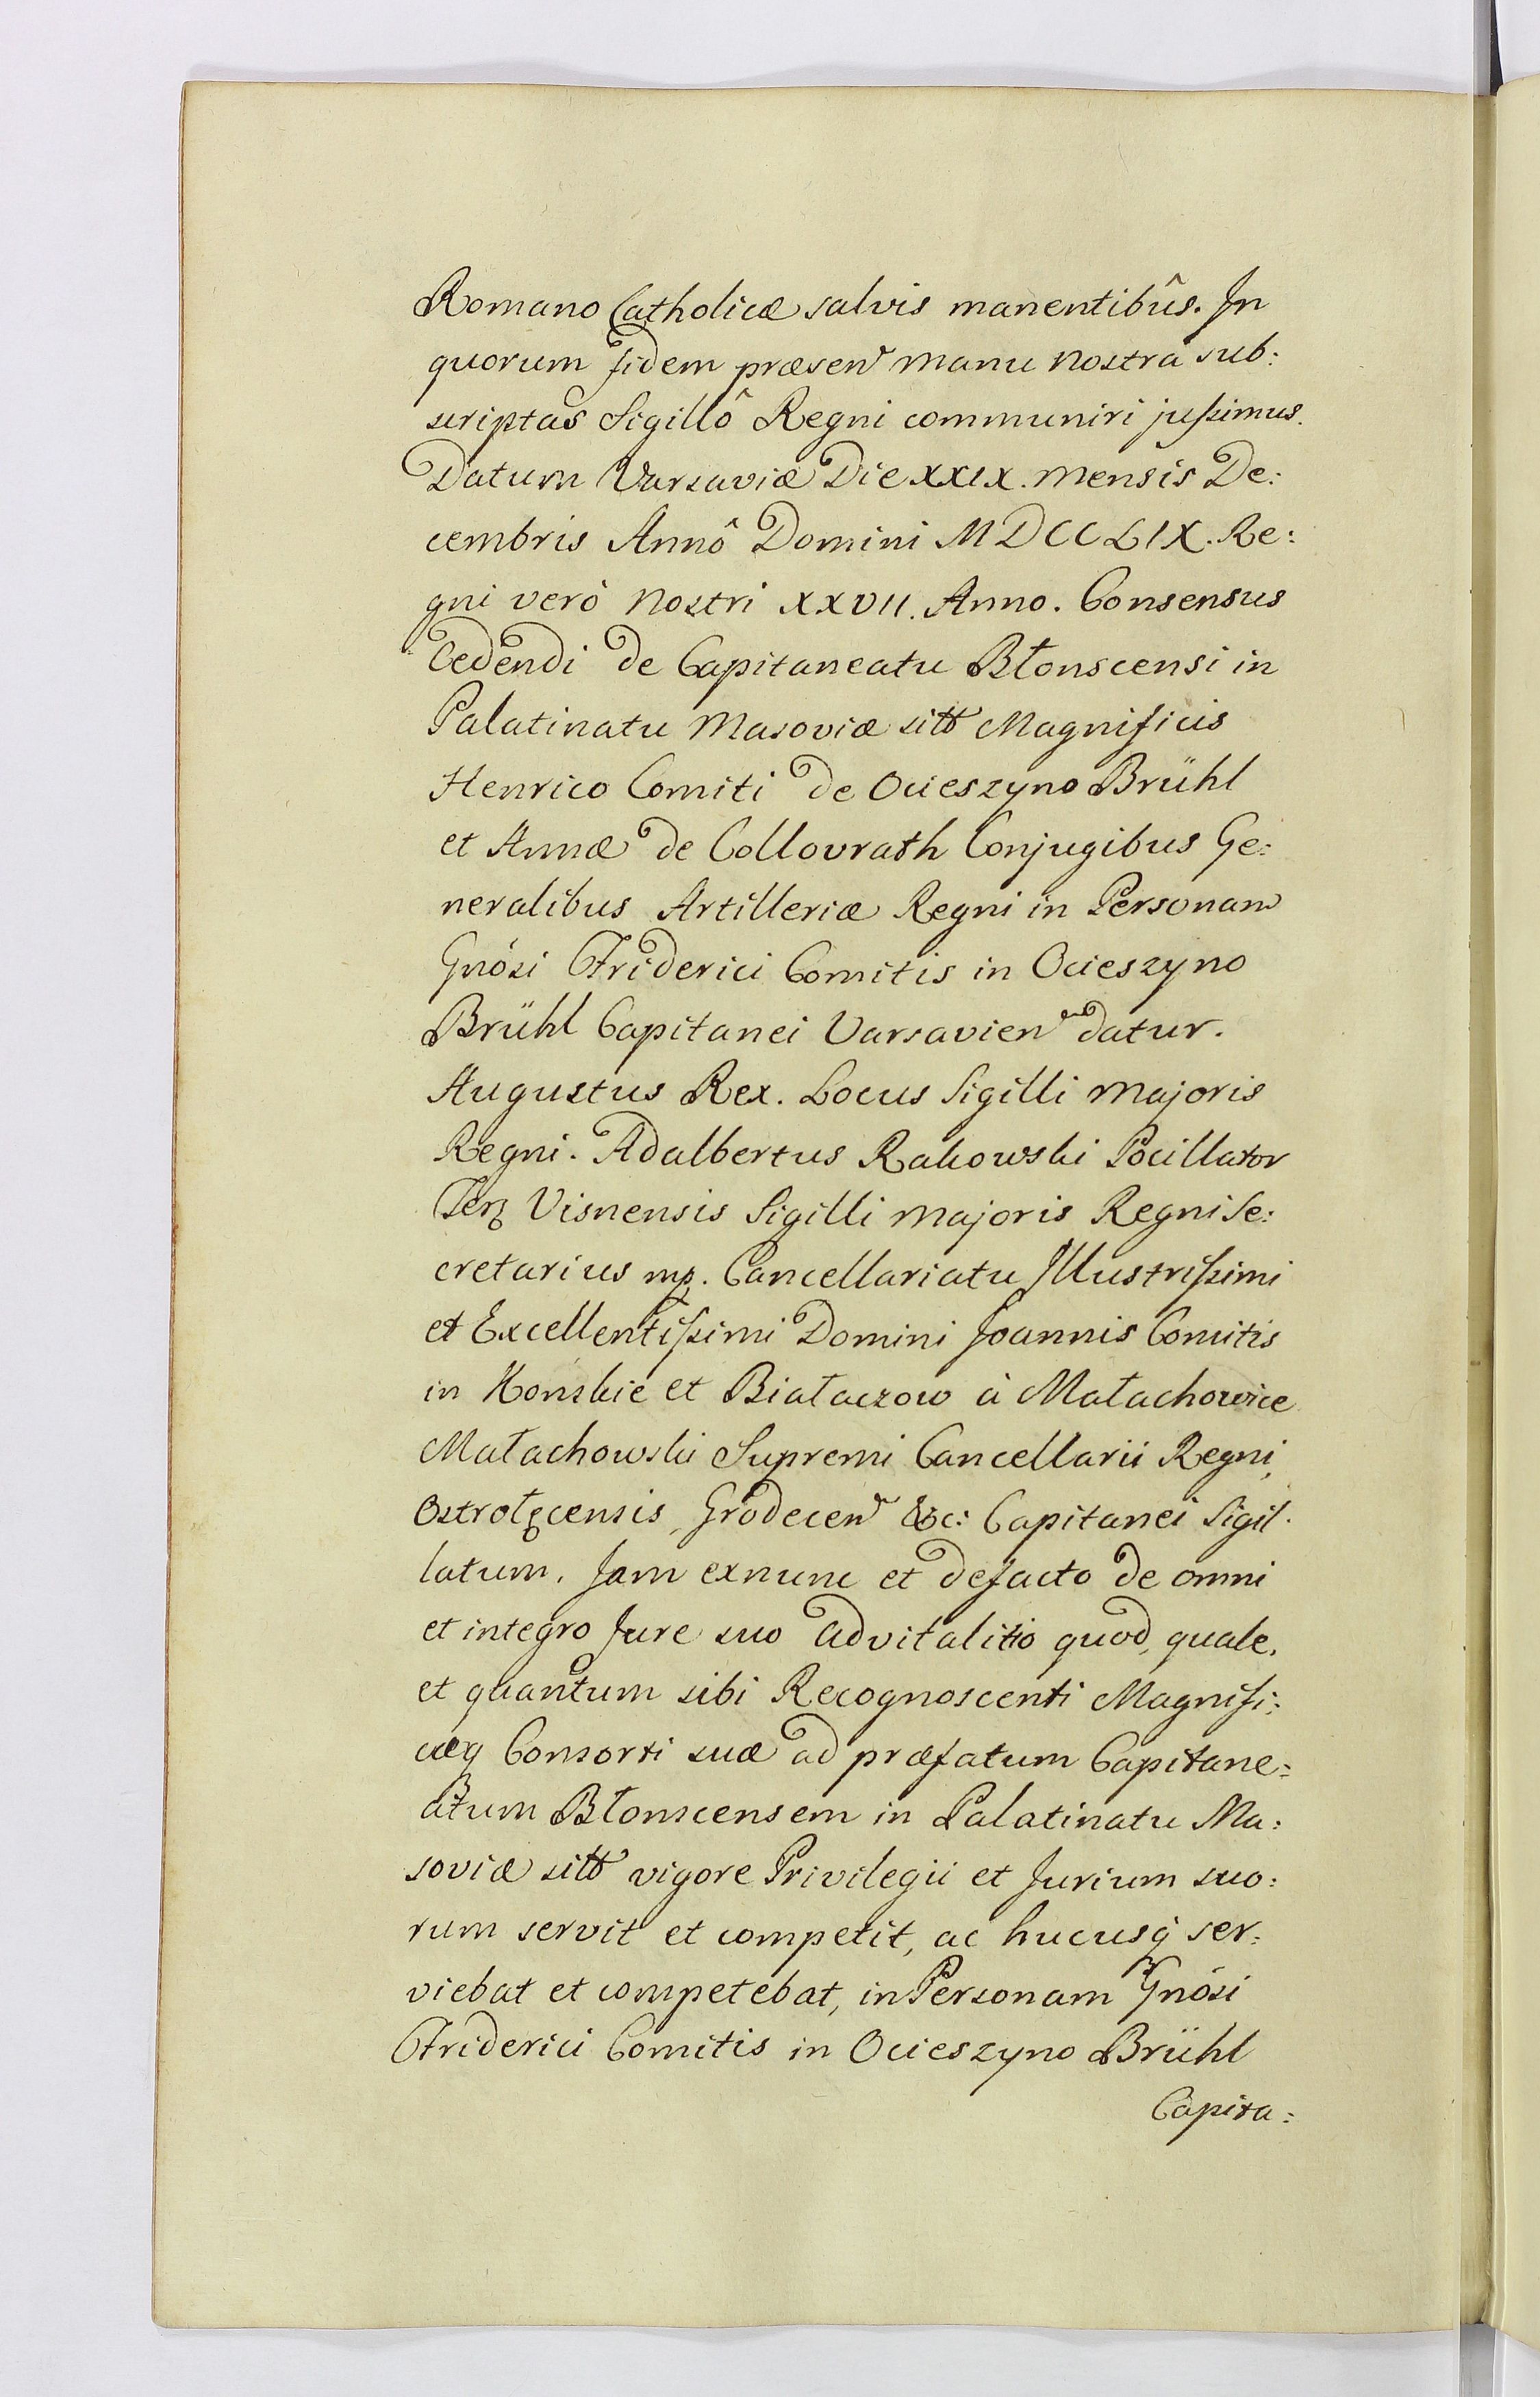 Romano Catholicæ salvis manentibûs. In
quorum fidem præsen manu nostra sub:
scriptas Sigillô Regni communiri jussimus.
Datum Varsaviæ Die XXIX. mensis De:
cembris Annô Domini MDCCLIX. Re:
gni verò nostri XXVII. Anno. Consensus
Cedendi de Capitaneatu Błonscensi in
Palatinatu Masoviæ sitt Magnificis
Henrico Comiti de Ocieszyno Brühl
et Annæ de Collovrath Conjugibus Ge:
neralibus Artilleriæ Regni in Personam
Gnósi Friderici Comitis in Ocieszyno
Brühl Capitanei Varsavien datur.
Augustus Rex. Locus Sigilli Majoris
Regni. Adalbertus Rakowski Pocillator
Terꝫ Visnensis Sigilli Majoris Regni Se:
cretarius mp. Cancellariatu Illustrissimi
et Excellentissimi Domini Joannis Comitis
in Konskie et Białaczow à Małachowice
Małachowski Supremi Cancellarii Regni,
Ostrołęcensis, Grodecen &c: Capitanei Sigil.
latum. Jam exnunc et defacto de omni
et integro Jure suo advitalitio quod, quale,
et quantum sibi Recognoscenti Magnifi:
cæq Consorti suæ ad præfatum Capitane:
atum Błonscensem in Palatinatu Ma:
soviæ sitt vigore Privilegii et Jurium suo:
rum servit et competit, ac hucusq ser:
viebat et competebat, in Personam Gnósi
Friderici Comitis in Ocieszyno Brühl
Capita: